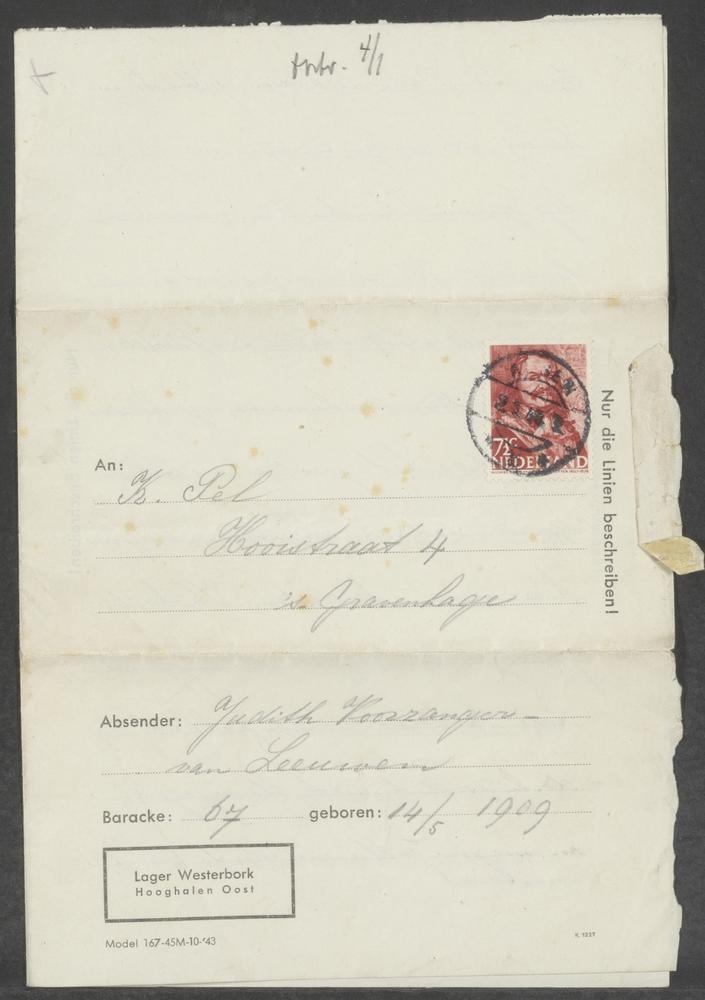 4/1
An:
K. Pel
Hooistraat 4
's-Gravenhage
7½C
NEDERLAND
Nur die Linien beschreiben!
Absender: Judith Voorzanger-
van Leeuwen
Baracke: 67 geboren: 14/5 1909
Lager Westerbork
Hooghalen Oost
Model 167-45M-10-'43
K 1227